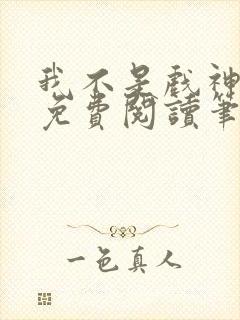 我不是戲神
免費閱讀筆
一色真人